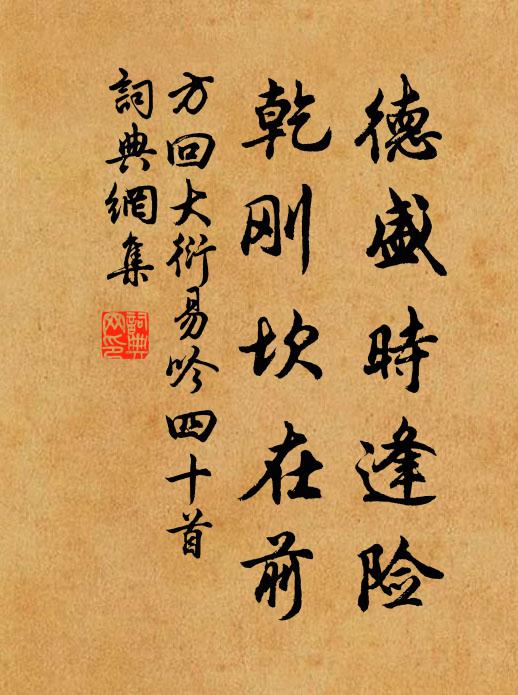 德盛時逢险
乾刚坎在前
方回大衍易吟四十首
詞典網集
詞典
网印